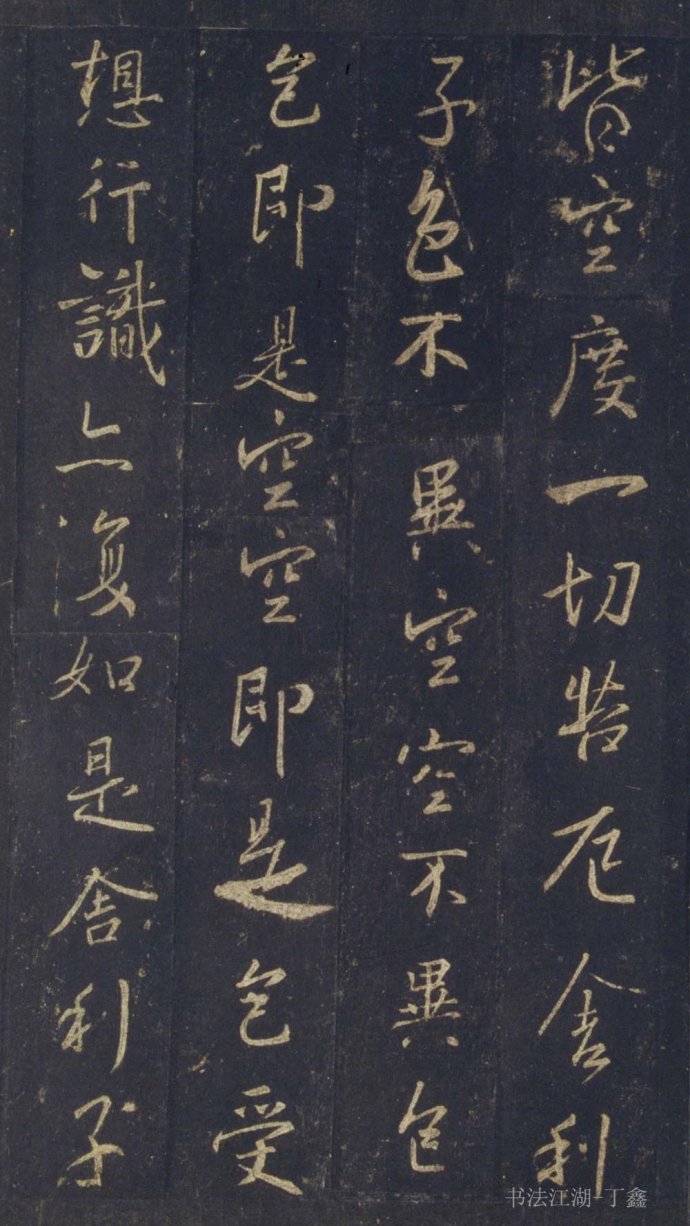 皆空度一切苦厄舍利
子色不異空空不異色
色即是空空即是色受
想行識亦復如是舍利子
书法江湖-丁鑫